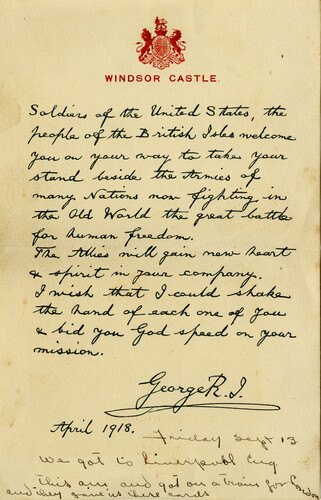 WINDSOR CASTLE.
Soldiers of the United States, the
people of the British Isles welcome
you on your way to take your
stand beside the Armies of
many Nations now fighting in
the Old World the great battle
for human freedom.
The Allies will gain new heart
& spirit in your company.
I wish that I could shake
the hand of each one of you
& bid you God speed on your
mission.
George R.I.
April 1918.
Friday Sept 13
We got to Liverpool Eng
this am and got on a train for
and they gave us these cards